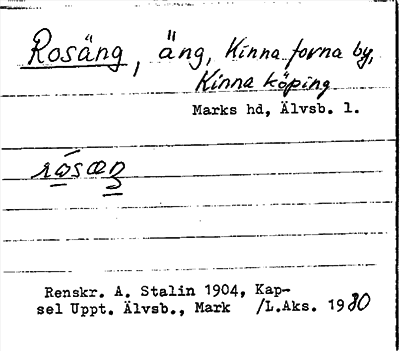 Rosäng, äng, Kinna forna by,
Kinna köping
Marks hd, Älvsb. l.
rósæŋ
Renskr. A. Stalin 1904, Kap-
sel Uppt. Älvsb., Mark /L.Aks. 1980